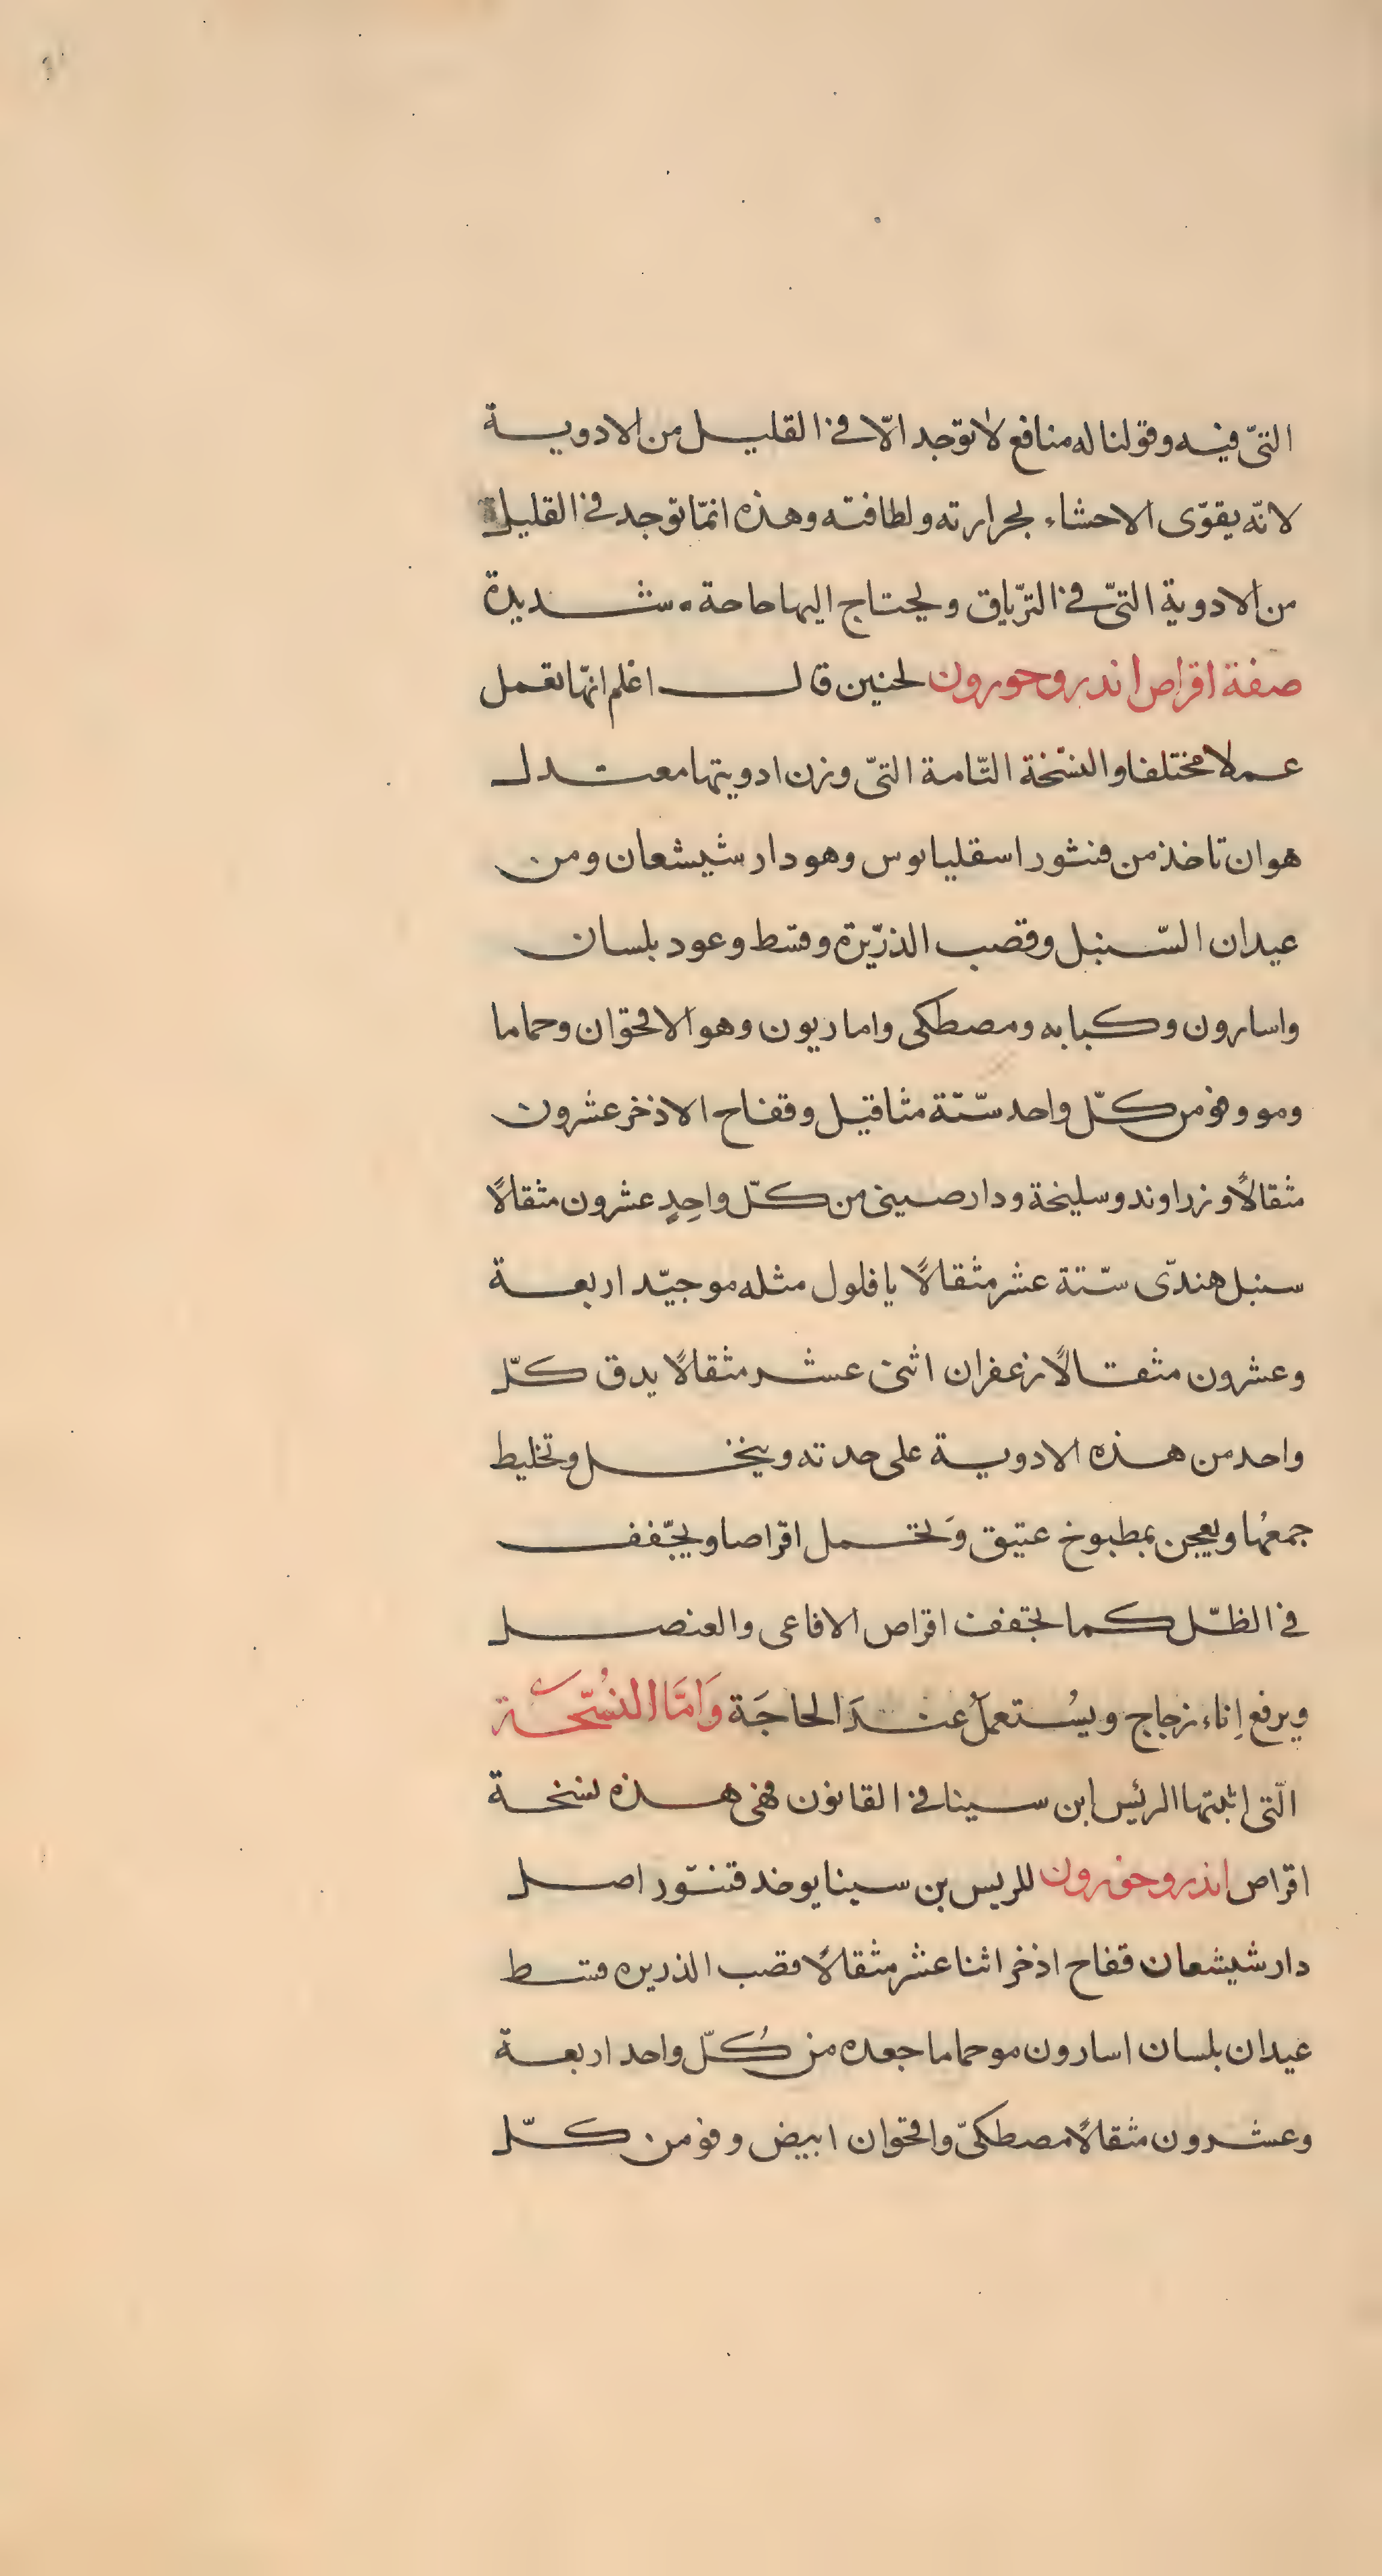 التّى فيه وقولنا له منافع لا توجد الّا فى القليل من الادوية
لانّه يقوّى الاحشاء بحرارته ولطافته وهذه انمّا توجد فى القليل
من الادوية التىّ فى الترّياق ويحتاج اليها حاحة شديدة
صفة اقراص اندروحورون لحنين قال اعلم انهّا تعمل
عملا مختلفا والنسّخة التّامة التىّ وزن ادويتها معتدل
هو ان تاخذ من قشور اسقليانوس وهو دار شيشعان ومن
عيدان السّنبل وقصب الذرّيرة وقسط وعود بلسان
واسارون وكبابه ومصطكى واماريون وهو الاقحوّان وحماما
ومو وفو من كلّ واحد ستّة مثاقيل وقفاح الاذخر عشرون
مثقالاً وزراوند وسليخة ودارصينى من كلّ واحِدٍ عشرون مثقالاً
سنبل هندىّ ستّة عشر مثقالاً يافلول مثله مو جيّد اربعة
وعشرون مثقالاً زعفران اثنى عشر مثقالاً يدق كلّ
واحد من هذه الادوية على حدته وينخل وتخليط
جمعُها ويعجن بمطبوخ عتيق وَتعمل اقراصا ويجّفف
فى الظّل كما تجّفف اقراص الافاعى والعنصل
ويرفع اِناء زجاج ويسُتعملُ عندَ الحاجَة وَامَّا النُسّخَة
الّتى اثبتها الرئيس ابن سينا فى القانون فهى هذه نسخة
اقراص انذروخورون للريس بن سينا يوخد قشّور اصل
دار شيشعان قفاح اذخر اثنا عشر مثقالاً قصب الذريره قسط
عيدان بلسان اسارون مو حماما جعده من كُلّ واحد اربعة
وعشرون مثقالاً مصطكىّ واقحوان ابيض وفو من كلّ